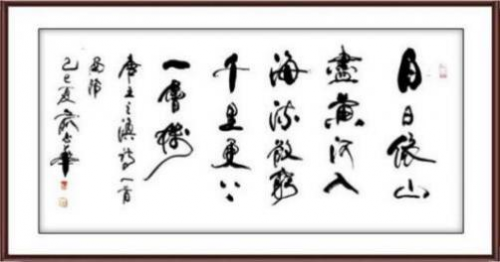 白日依山
盡黄河入
海流欲窮
千里更上
一層樓
唐王之渙詩一首
己巳夏